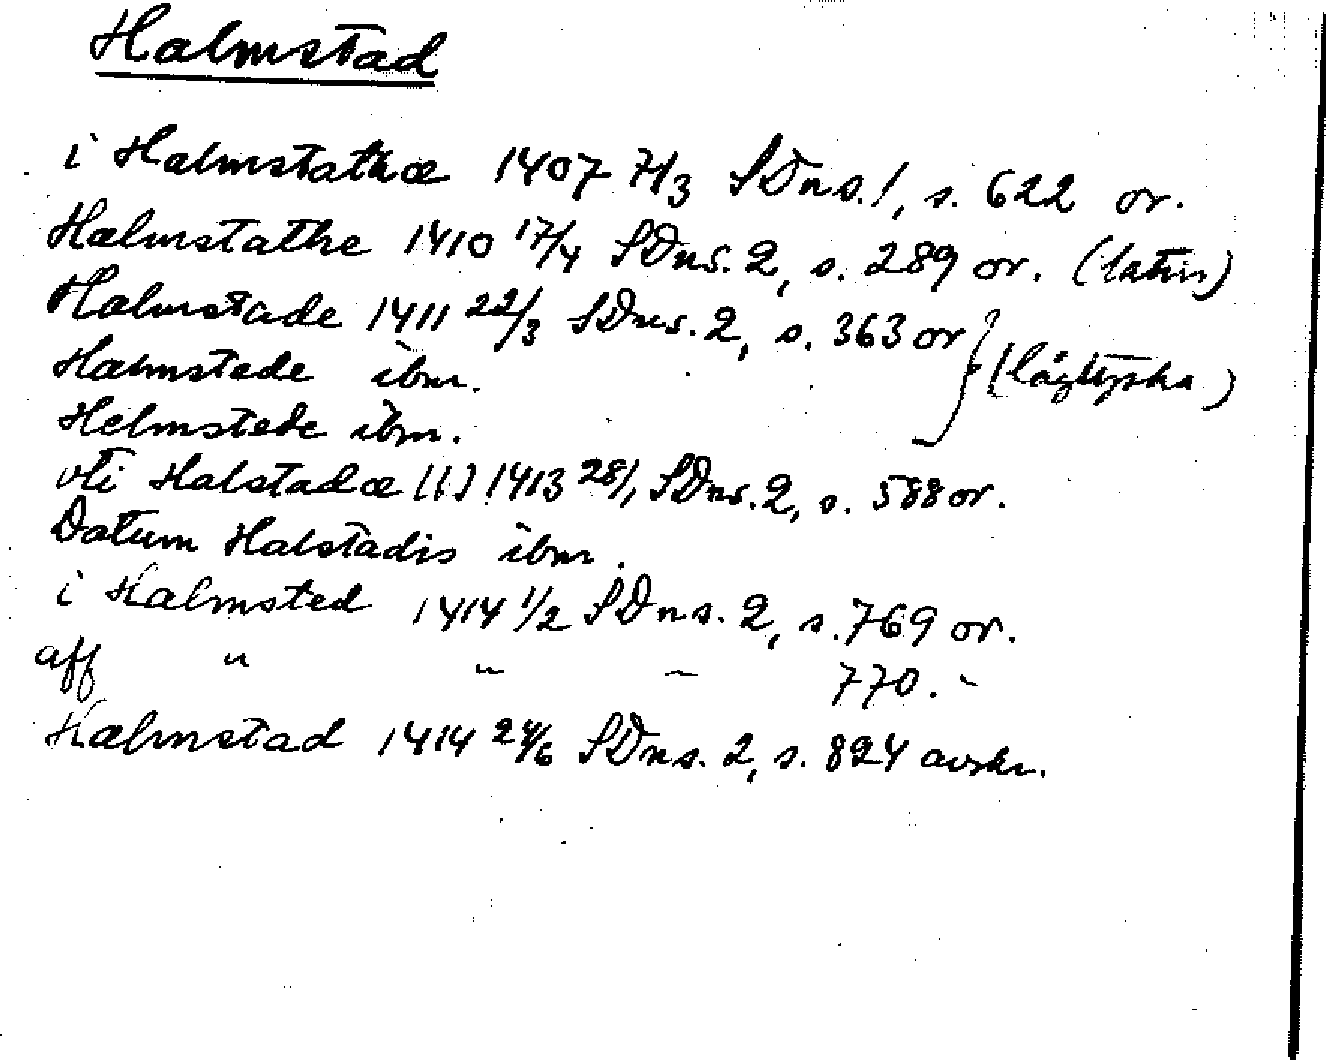 Halmstad
i Halmstathæ 1407 7/3 SDns. 1, s. 622 or.
Halmstathe 1410 17/4 SDns. 2, s. 289 or. (latin)
Halmstade 1411 22/3 SDns. 2, s. 363 or } (lågtyska)
Halmstede ibm.
Helmstede ibm.
vti Halstadæ (!) 1413 28/1 SDns. 2, s. 588 or.
Datum Halstadis ibm.
i Halmsted 1414 1/2 SDns. 2, s. 769 or.
aff " " - 770. -
Halmstad 1414 24/6 SDns. 2, s. 824 avskr.